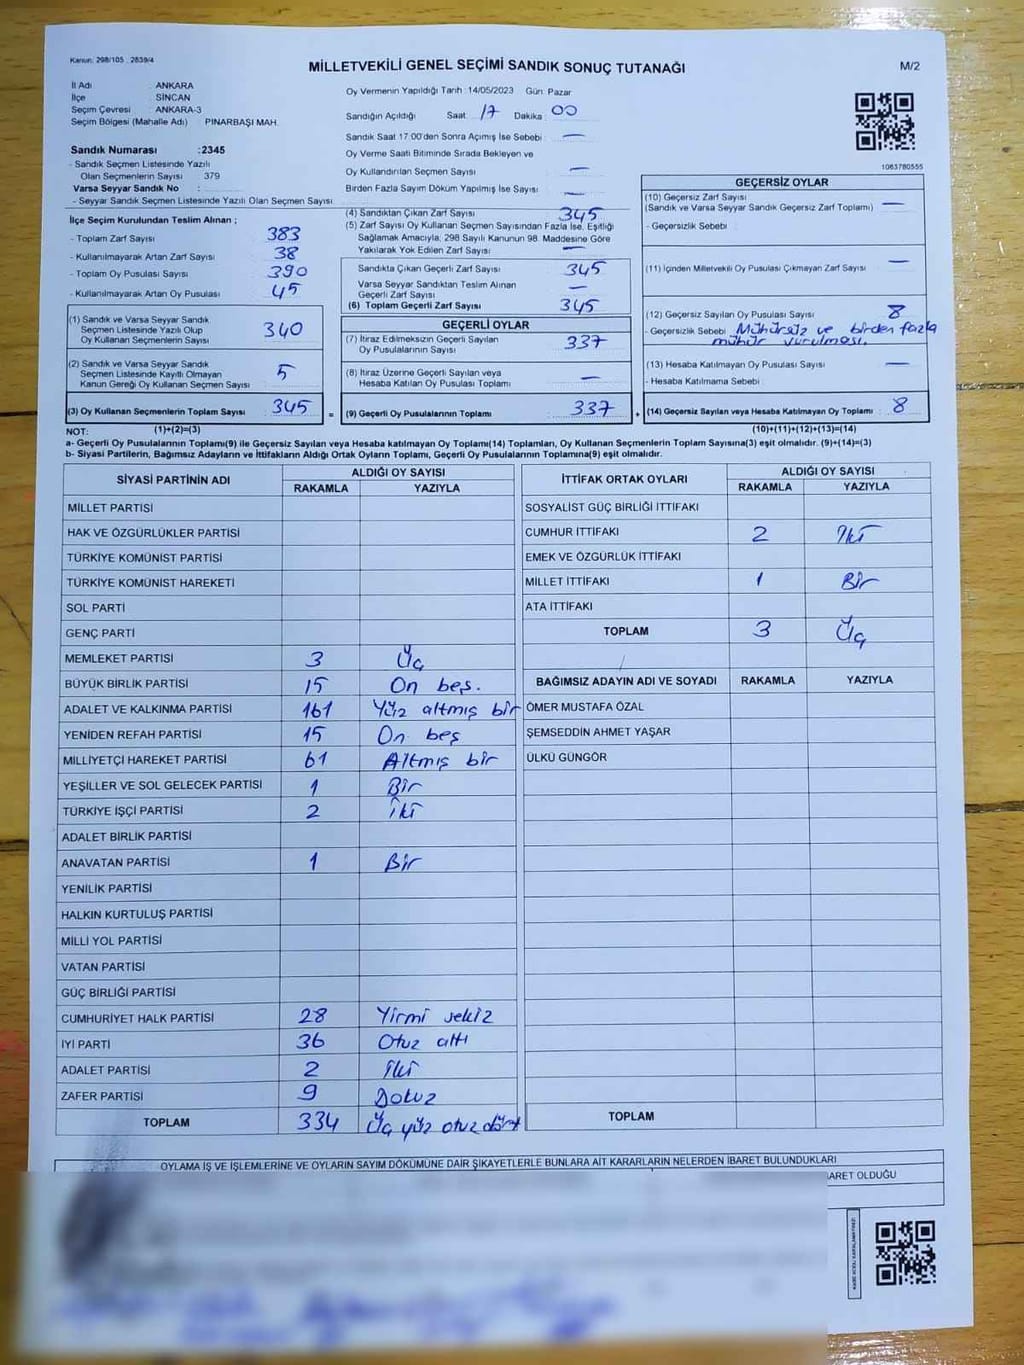 Kanun: 298/105 , 2839/4
MİLLETVEKİLİ GENEL SEÇİMİ SANDIK SONUÇ TUTANAĞI
M/2
İl Adı : ANKARA
İlçe : SİNCAN
Seçim Çevresi : ANKARA-3
Seçim Bölgesi (Mahalle Adı) : PINARBAŞI MAH.
Sandık Numarası :2345
- Sandık Seçmen Listesinde Yazılı
Olan Seçmenlerin Sayısı : 379
Varsa Seyyar Sandık No :
- Seyyar Sandık Seçmen Listesinde Yazılı Olan Seçmen Sayısı
İlçe Seçim Kurulundan Teslim Alınan ;
- Toplam Zarf Sayısı 383
- Kullanılmayarak Artan Zarf Sayısı 38
- Toplam Oy Pusulası Sayısı 390
- Kullanılmayarak Artan Oy Pusulası 45
(1) Sandık ve Varsa Seyyar Sandık
Seçmen Listesinde Yazılı Olup
Oy Kullanan Seçmenlerin Sayısı 340
(2) Sandık ve Varsa Seyyar Sandık
Seçmen Listesinde Kayıtlı Olmayan
Kanun Gereği Oy Kullanan Seçmen Sayısı 5
(3) Oy Kullanan Seçmenlerin Toplam Sayısı 345 =
Oy Vermenin Yapıldığı Tarih :14/05/2023 Gün: Pazar
Sandığın Açıldığı Saat : 17 Dakika : 00
Sandık Saat 17:00'den Sonra Açılmış İse Sebebi : —
Oy Verme Saati Bitiminde Sırada Bekleyen ve
Oy Kullandırılan Seçmen Sayısı : —
Birden Fazla Sayım Döküm Yapılmış İse Sayısı : —
(4) Sandıktan Çıkan Zarf Sayısı 345
(5) Zarf Sayısı Oy Kullanan Seçmen Sayısından Fazla İse, Eşitliği
Sağlamak Amacıyla; 298 Sayılı Kanunun 98. Maddesine Göre
Yakılarak Yok Edilen Zarf Sayısı —
Sandıkta Çıkan Geçerli Zarf Sayısı 345
Varsa Seyyar Sandıktan Teslim Alınan
Geçerli Zarf Sayısı —
(6) Toplam Geçerli Zarf Sayısı 345
GEÇERLİ OYLAR
(7) İtiraz Edilmeksizin Geçerli Sayılan
Oy Pusulalarının Sayısı 337
(8) İtiraz Üzerine Geçerli Sayılan veya
Hesaba Katılan Oy Pusulası Toplamı —
(9) Geçerli Oy Pusulalarının Toplamı 337 +
1063780555
GEÇERSİZ OYLAR
(10) Geçersiz Zarf Sayısı
(Sandık ve Varsa Seyyar Sandık Geçersiz Zarf Toplamı) —
- Geçersizlik Sebebi :
(11) İçinden Milletvekili Oy Pusulası Çıkmayan Zarf Sayısı —
(12) Geçersiz Sayılan Oy Pusulası Sayısı 8
- Geçersizlik Sebebi : Mühürsüz ve birden fazla
mühür vurulması.
(13) Hesaba Katılmayan Oy Pusulası Sayısı —
- Hesaba Katılmama Sebebi :
(14) Geçersiz Sayılan veya Hesaba Katılmayan Oy Toplamı 8
NOT: (1)+(2)=(3) (10)+(11)+(12)+(13)=(14)
a- Geçerli Oy Pusulalarının Toplamı(9) ile Geçersiz Sayılan veya Hesaba katılmayan Oy Toplamı(14) Toplamları, Oy Kullanan Seçmenlerin Toplam Sayısına(3) eşit olmalıdır. (9)+(14)=(3)
b- Siyasi Partilerin, Bağımsız Adayların ve İttifakların Aldığı Ortak Oyların Toplamı, Geçerli Oy Pusulalarının Toplamına(9) eşit olmalıdır.
SİYASİ PARTİNİN ADI ALDIĞI OY SAYISI
RAKAMLA YAZIYLA
MİLLET PARTİSİ
HAK VE ÖZGÜRLÜKLER PARTİSİ
TÜRKİYE KOMÜNİST PARTİSİ
TÜRKİYE KOMÜNİST HAREKETİ
SOL PARTİ
GENÇ PARTİ
MEMLEKET PARTİSİ 3 Üç
BÜYÜK BİRLİK PARTİSİ 15 On beş.
ADALET VE KALKINMA PARTİSİ 161 Yüz altmış bir
YENİDEN REFAH PARTİSİ 15 On beş
MİLLİYETÇİ HAREKET PARTİSİ 61 Altmış bir
YEŞİLLER VE SOL GELECEK PARTİSİ 1 Bir
TÜRKİYE İŞÇİ PARTİSİ 2 İki
ADALET BİRLİK PARTİSİ
ANAVATAN PARTİSİ 1 Bir
YENİLİK PARTİSİ
HALKIN KURTULUŞ PARTİSİ
MİLLİ YOL PARTİSİ
VATAN PARTİSİ
GÜÇ BİRLİĞİ PARTİSİ
CUMHURİYET HALK PARTİSİ 28 Yirmi sekiz
İYİ PARTİ 36 Otuz altı
ADALET PARTİSİ 2 İki
ZAFER PARTİSİ 9 Dokuz
TOPLAM 334 Üç yüz otuz dört
İTTİFAK ORTAK OYLARI ALDIĞI OY SAYISI
RAKAMLA YAZIYLA
SOSYALİST GÜÇ BİRLİĞİ İTTİFAKI
CUMHUR İTTİFAKI 2 İki
EMEK VE ÖZGÜRLÜK İTTİFAKI
MİLLET İTTİFAKI 1 Bir
ATA İTTİFAKI
TOPLAM 3 Üç
BAĞIMSIZ ADAYIN ADI VE SOYADI RAKAMLA YAZIYLA
ÖMER MUSTAFA ÖZAL
ŞEMSEDDİN AHMET YAŞAR
ÜLKÜ GÜNGÖR
TOPLAM
OYLAMA İŞ VE İŞLEMLERİNE VE OYLARIN SAYIM DÖKÜMÜNE DAİR ŞİKAYETLERLE BUNLARA AİT KARARLARIN NELERDEN İBARET BULUNDUKLARI
BARET OLDUĞU